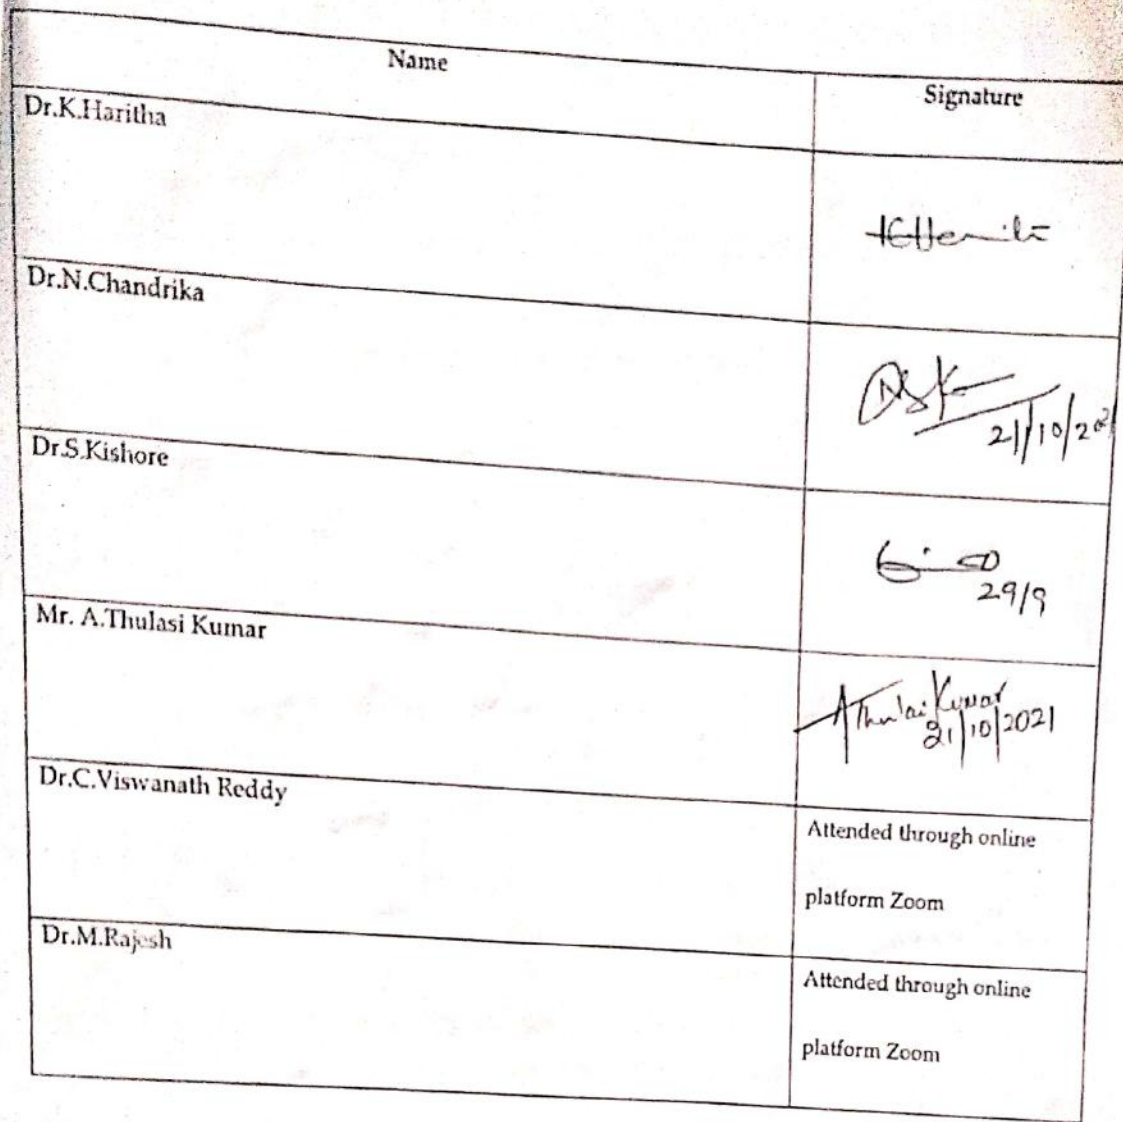 Name
Signature
Dr.K.Haritha
Dr.N.Chandrika
21/10/2021
Dr.S.Kishore
29/9
Mr. A.Thulasi Kumar
AThulasi Kumar
21/10/2021
Dr.C.Viswanath Reddy
Attended through online
platform Zoom
Dr.M.Rajesh
Attended through online
platform Zoom